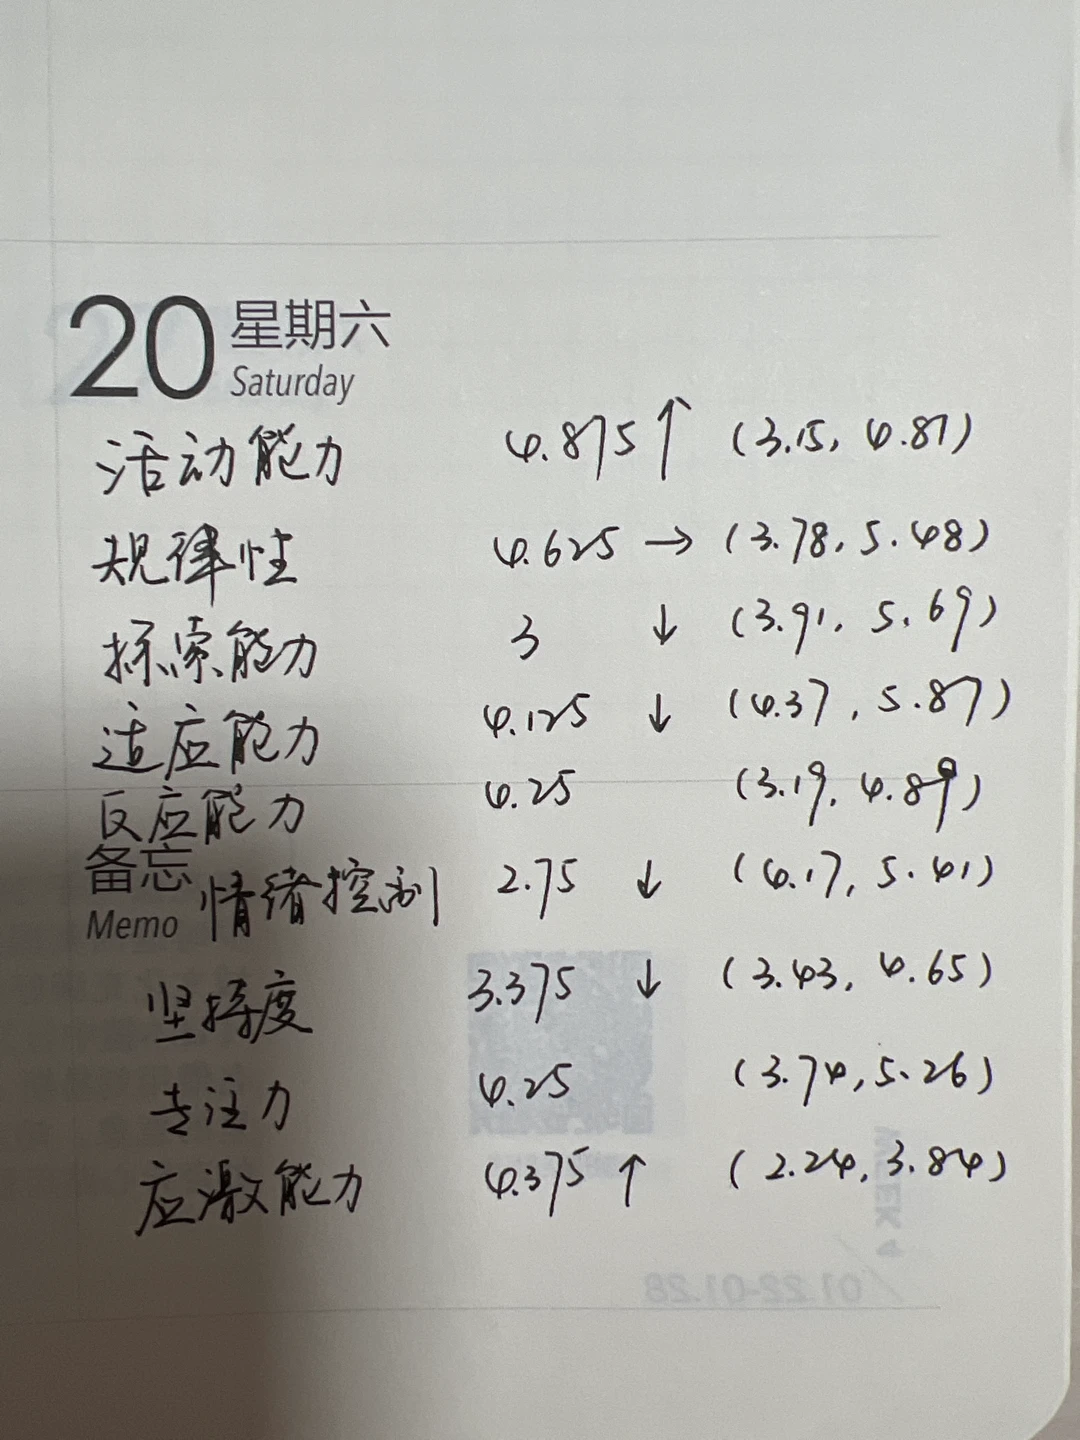 20 星期六
Saturday
活动能力 4.875 ↑ (3.15, 4.87)
规律性 4.625 → (3.78, 5.48)
探索能力 3 ↓ (3.91, 5.69)
适应能力 4.125 ↓ (4.37, 5.87)
反应能力 4.25 (3.19, 4.89)
备忘
Memo 情绪控制 2.75 ↓ (4.17, 5.41)
坚持度 3.375 ↓ (3.43, 4.65)
专注力 4.25 (3.74, 5.26)
应激能力 4.375 ↑ (2.24, 3.84)
WEEK 4
01.22-01.28